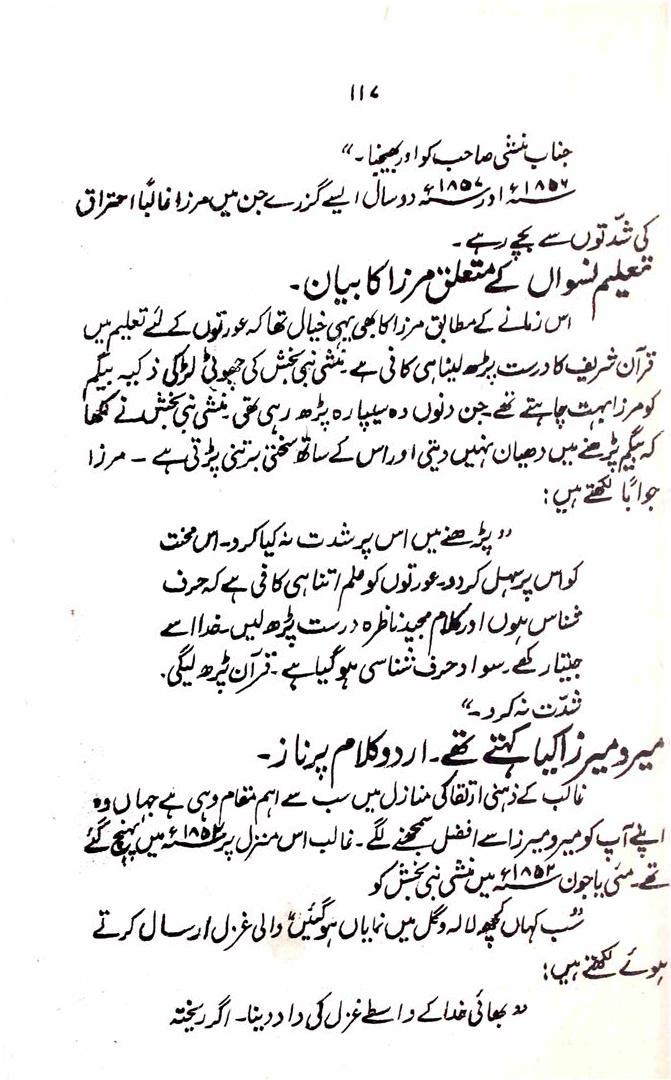 ۱۱۷
جناب منشی صاحب کو اور بھیجنا۔"
۱۸۵۶ء اور ۱۸۵۷ء دو سال ایسے گزرے جن میں مرزا غالباً احتراق
کی شدّتوں سے بچے رہے۔
تعلیم نسواں کے متعلق مرزا کا بیان۔
اس زمانے کے مطابق مرزا کا بھی یہی خیال تھا کہ عورتوں کے لئے تعلیم میں
قرآن شریف کا درست پڑھ لینا ہی کافی ہے۔ منشی نبی بخش کی چھوٹی لڑکی ذکیہ بیگم
کو مرزا بہت چاہتے تھے جن دنوں وہ سیپارہ پڑھ رہی تھی منشی نبی بخش نے لکھا
کہ بیگم پڑھنے میں دھیان نہیں دیتی اور اس کے ساتھ سختی برتنی پڑتی ہے ۔ مرزا
جواباً لکھتے ہیں:
"پڑھنے میں اس پر شدت نہ کیا کرو۔ اس محنت
کو اس پر سہل کر دو۔ عورتوں کو علم اتنا ہی کافی ہے کہ حرف
شناس ہوں اور کلام مجید ناظرہ درست پڑھ لیں۔ خدا اسے
جیتا رکھے۔ سواد حرف شناسی ہو گیا ہے۔ قرآن پڑھ لیگی۔
شدّت نہ کرو۔"
میر و میرزا کیا کہتے تھے۔ اردو کلام پر ناز۔
غالب کے ذہنی ارتقا کی منازل میں سب سے اہم مقام وہی ہے جہاں وہ
اپنے آپ کو میر و میرزا سے افضل سمجھنے لگے۔ غالب اس منزل پر ۱۸۵۲ء میں پہنچ گئے
تھے۔ مئی یا جون ۱۸۵۲ء میں منشی نبی بخش کو
"سب کہاں کچھ لالہ و گل میں نمایاں ہو گئیں" والی غزل ارسال کرتے
ہوئے لکھتے ہیں:
"بھائی خدا کے واسطے غزل کی داد دینا۔ اگر ریختہ